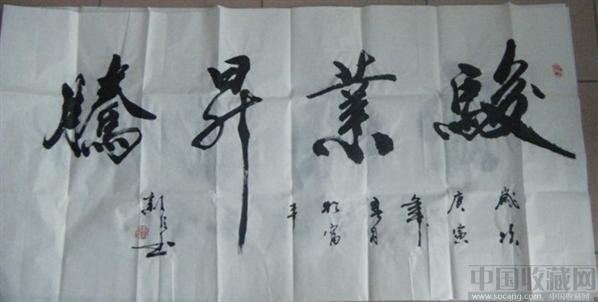 駿業昇騰
歲次
庚寅
年
春月
於富
平
中国收藏网
www.socang.com 中国收藏网